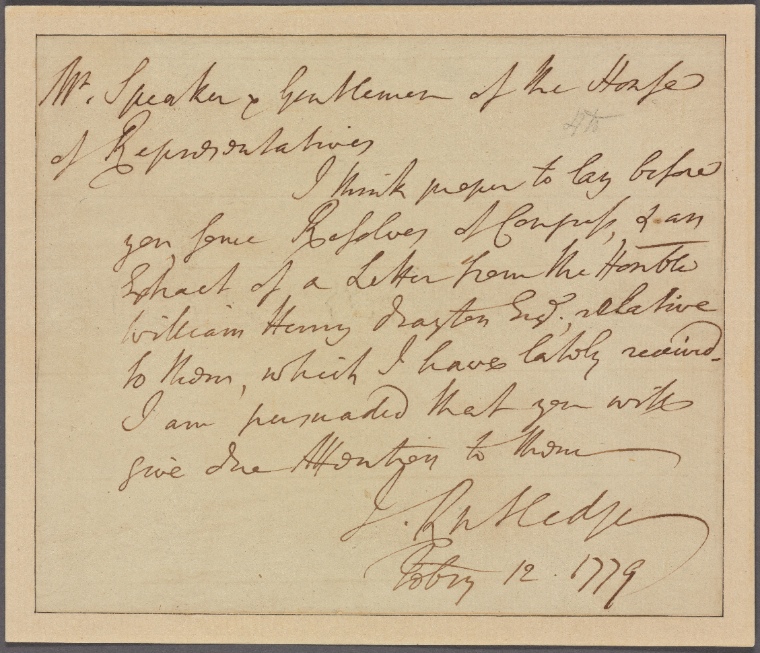 Mr. Speaker & Gentlemen of the House
of Representatives
I think proper to lay before
you, some Resolves of Congress, & an
Extract of a Letter from the Honble
William Henry Drayton Esqr. relative
to them, which I have lately received.
I am persuaded that you will
give due Attention to them
J. Rutledge
Febry 12. 1779